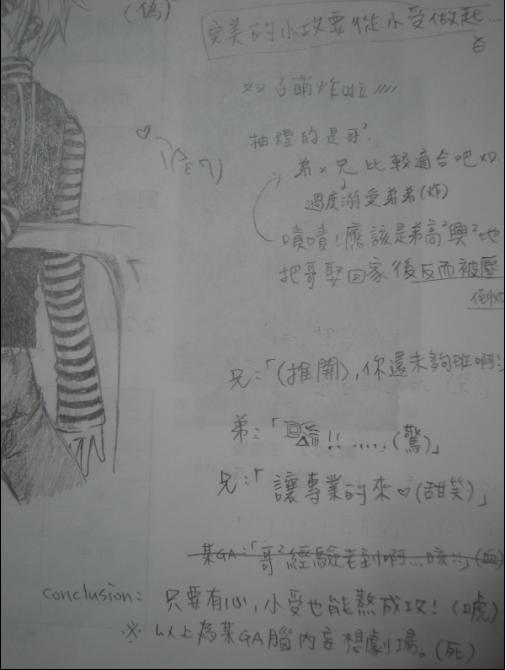 (偽)
完美的小攻要從小受做起...
双子萌炸啦////
抽煙的是哥
弟x兄比較適合吧XD
過度溺愛弟弟(炸)
嘖嘖!應該是弟高²興²地
把哥娶回家後反而被壓
倒
兄:「(推開),你還未夠班啊
弟:「!!.....(驚)」
兄:「讓專業的來♡(甜笑)」
某GA:「哥²經驗老到啊...咳
conclusion: 只要有心,小受也能熬成攻!(唬)
※ 以上為某GA腦內妄想劇場。(死)